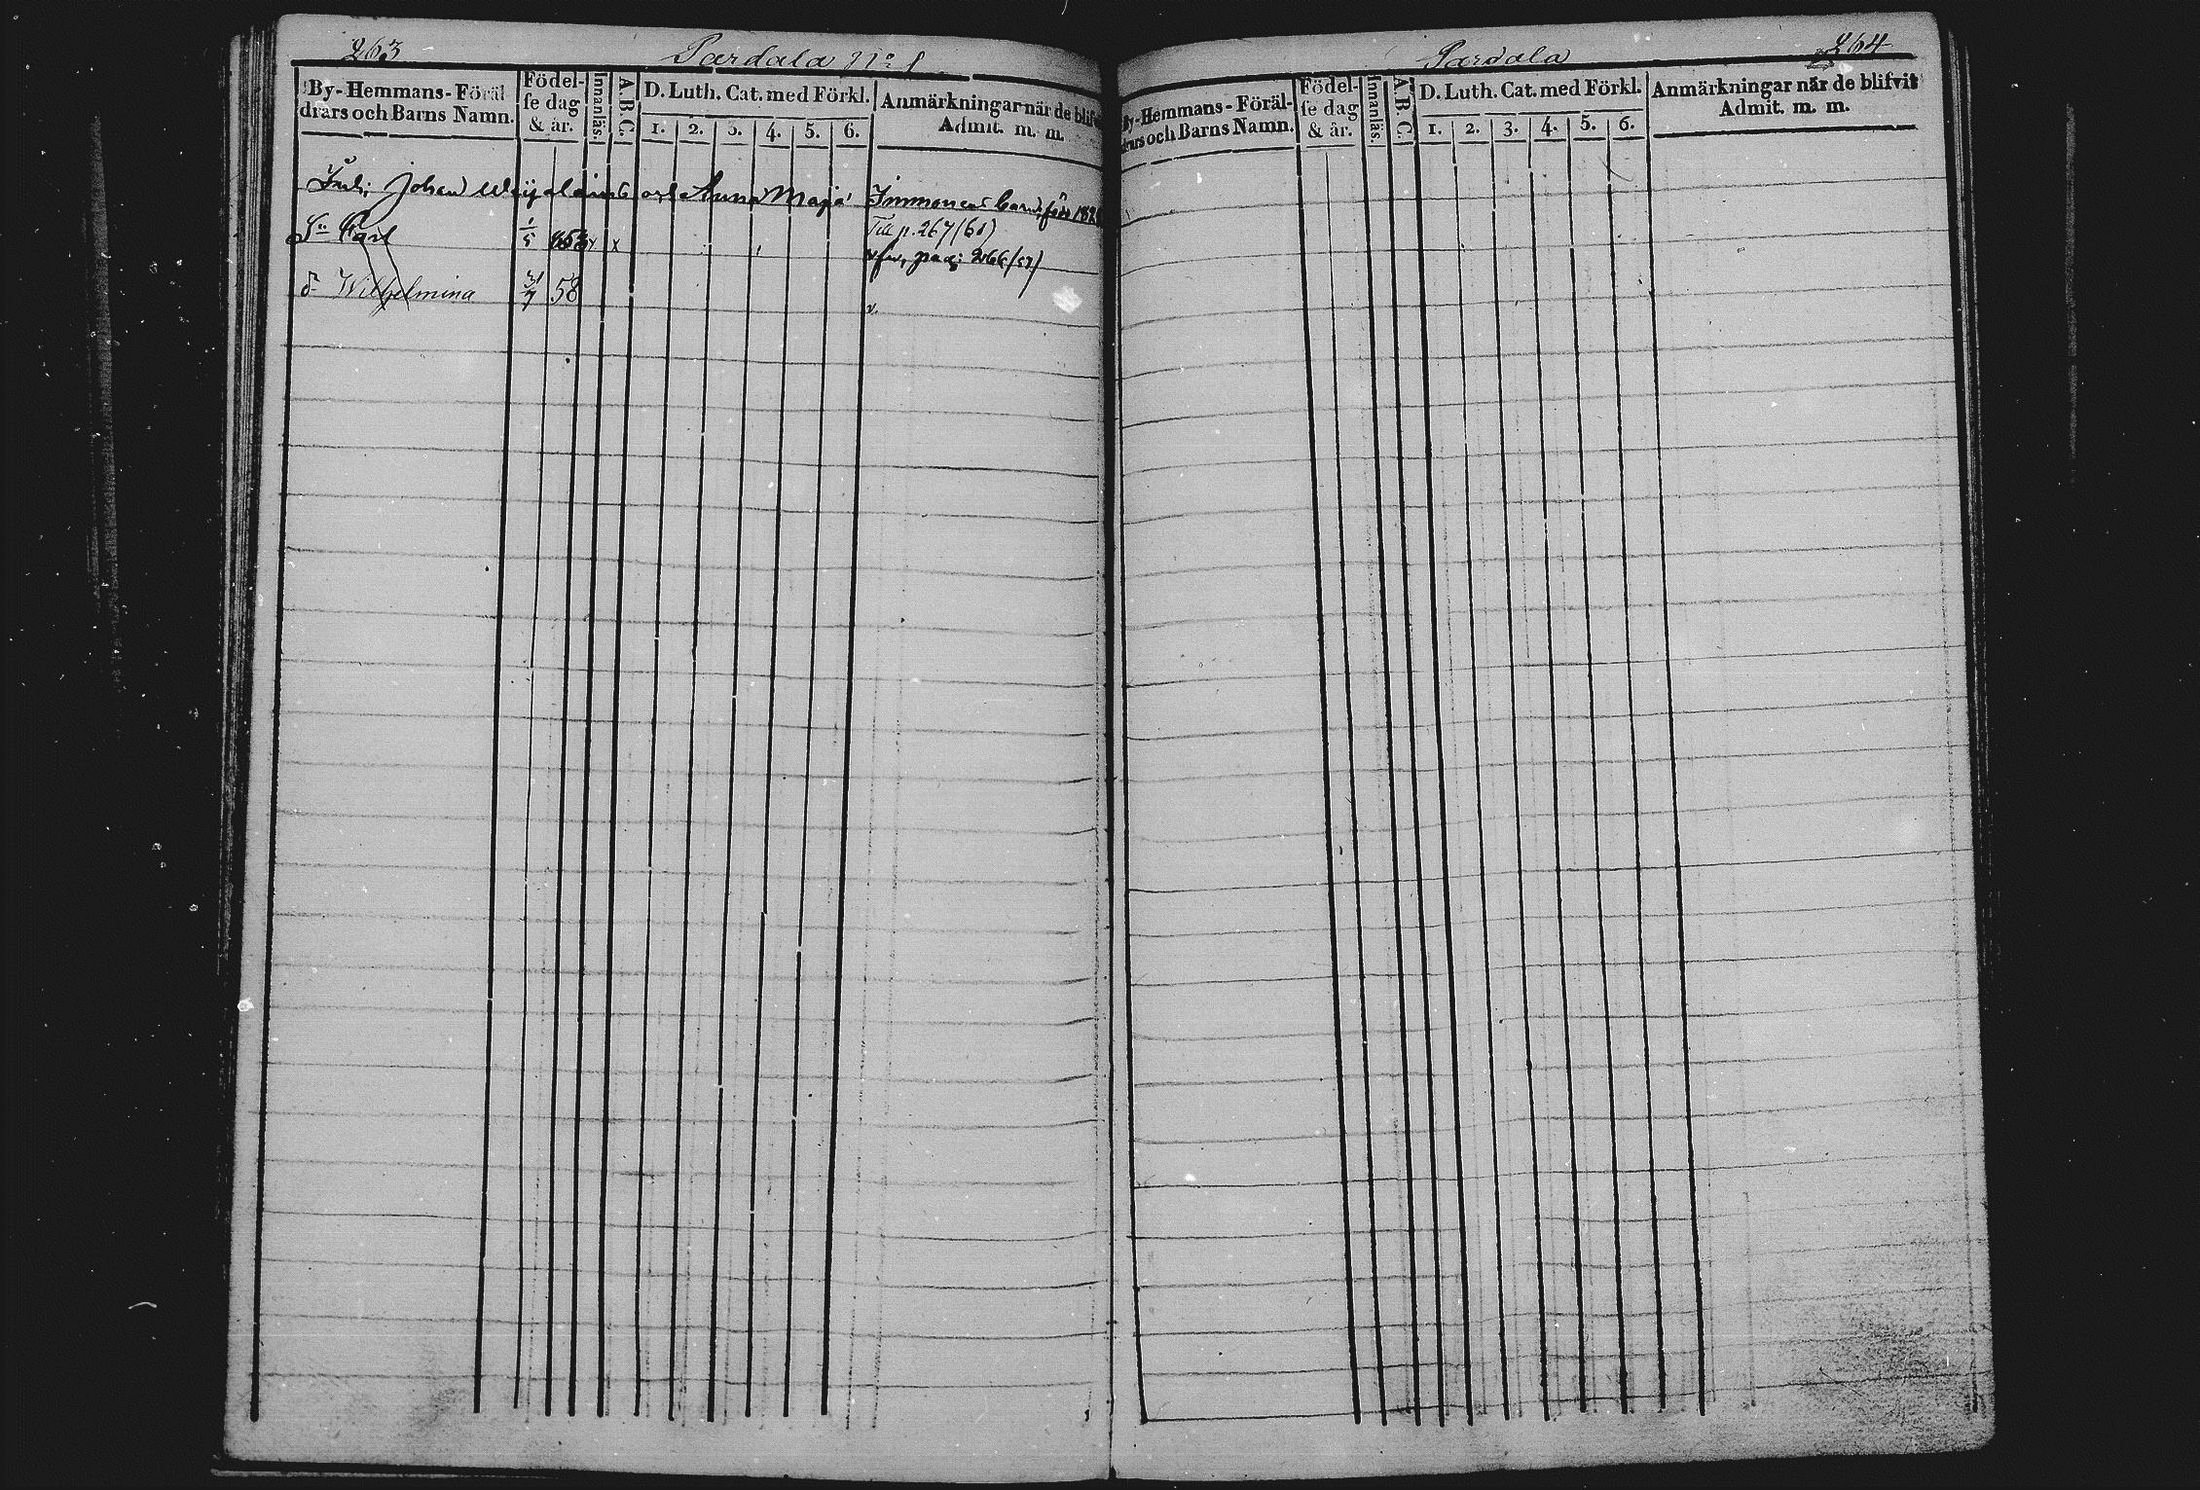 263
Pardala No 1
By-Hemmans-Föräl
drars och Barns Namn.
Födel-
se dag
& år.
Innanläs.
A.B.C.
D. Luth. Cat. med Förkl.
1. 2. 3. 4. 5. 6.
Anmärkningar när de blif
Admit. m. m.
Inh. Johan och Anna Maja Immonens barn
Sn Carl 1/5 x
Till p. 267/60)
pag: 266/57)
d- Wilhelmina 31/7 58
Pardala
264
By-Hemmans-Föräl-
drars och Barns Namn.
Födel-
se dag
& år.
Innanläs.
A.B.C.
D. Luth. Cat. med Förkl.
1. 2. 3. 4. 5. 6.
Anmärkningar när de blifvit
Admit. m. m.